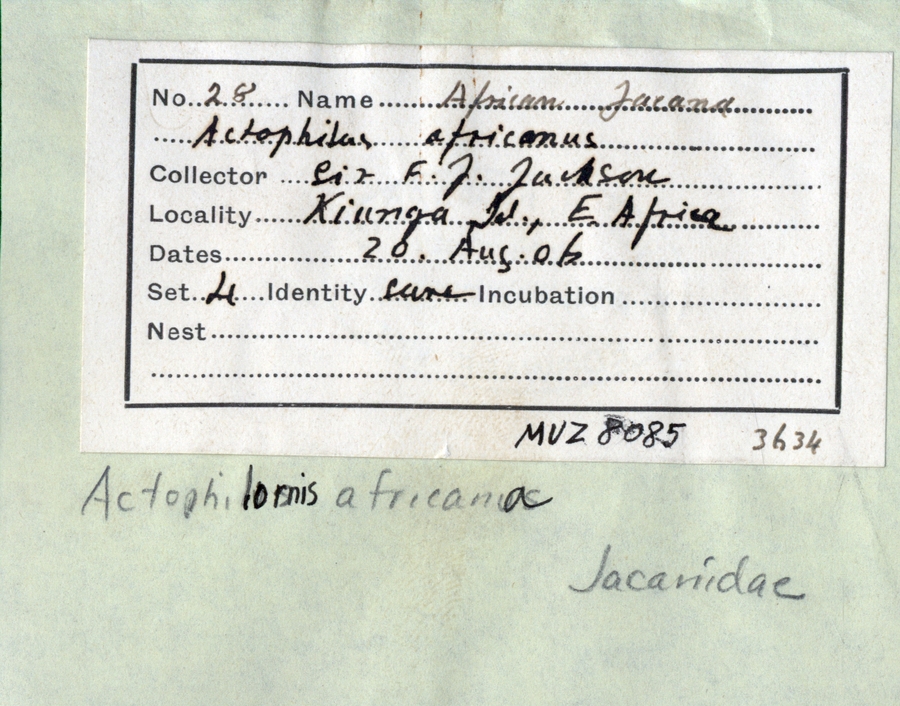 No. 28 Name African Jacana
Actophilus africanus
Collector Sir F. J. Jackson
Locality Kiunga Id., E. Africa
Dates 20. Aug. 06
Set 4 Identity sure Incubation
Nest
MUZ 8085 3634
Actophilornis africana
Jacanidae